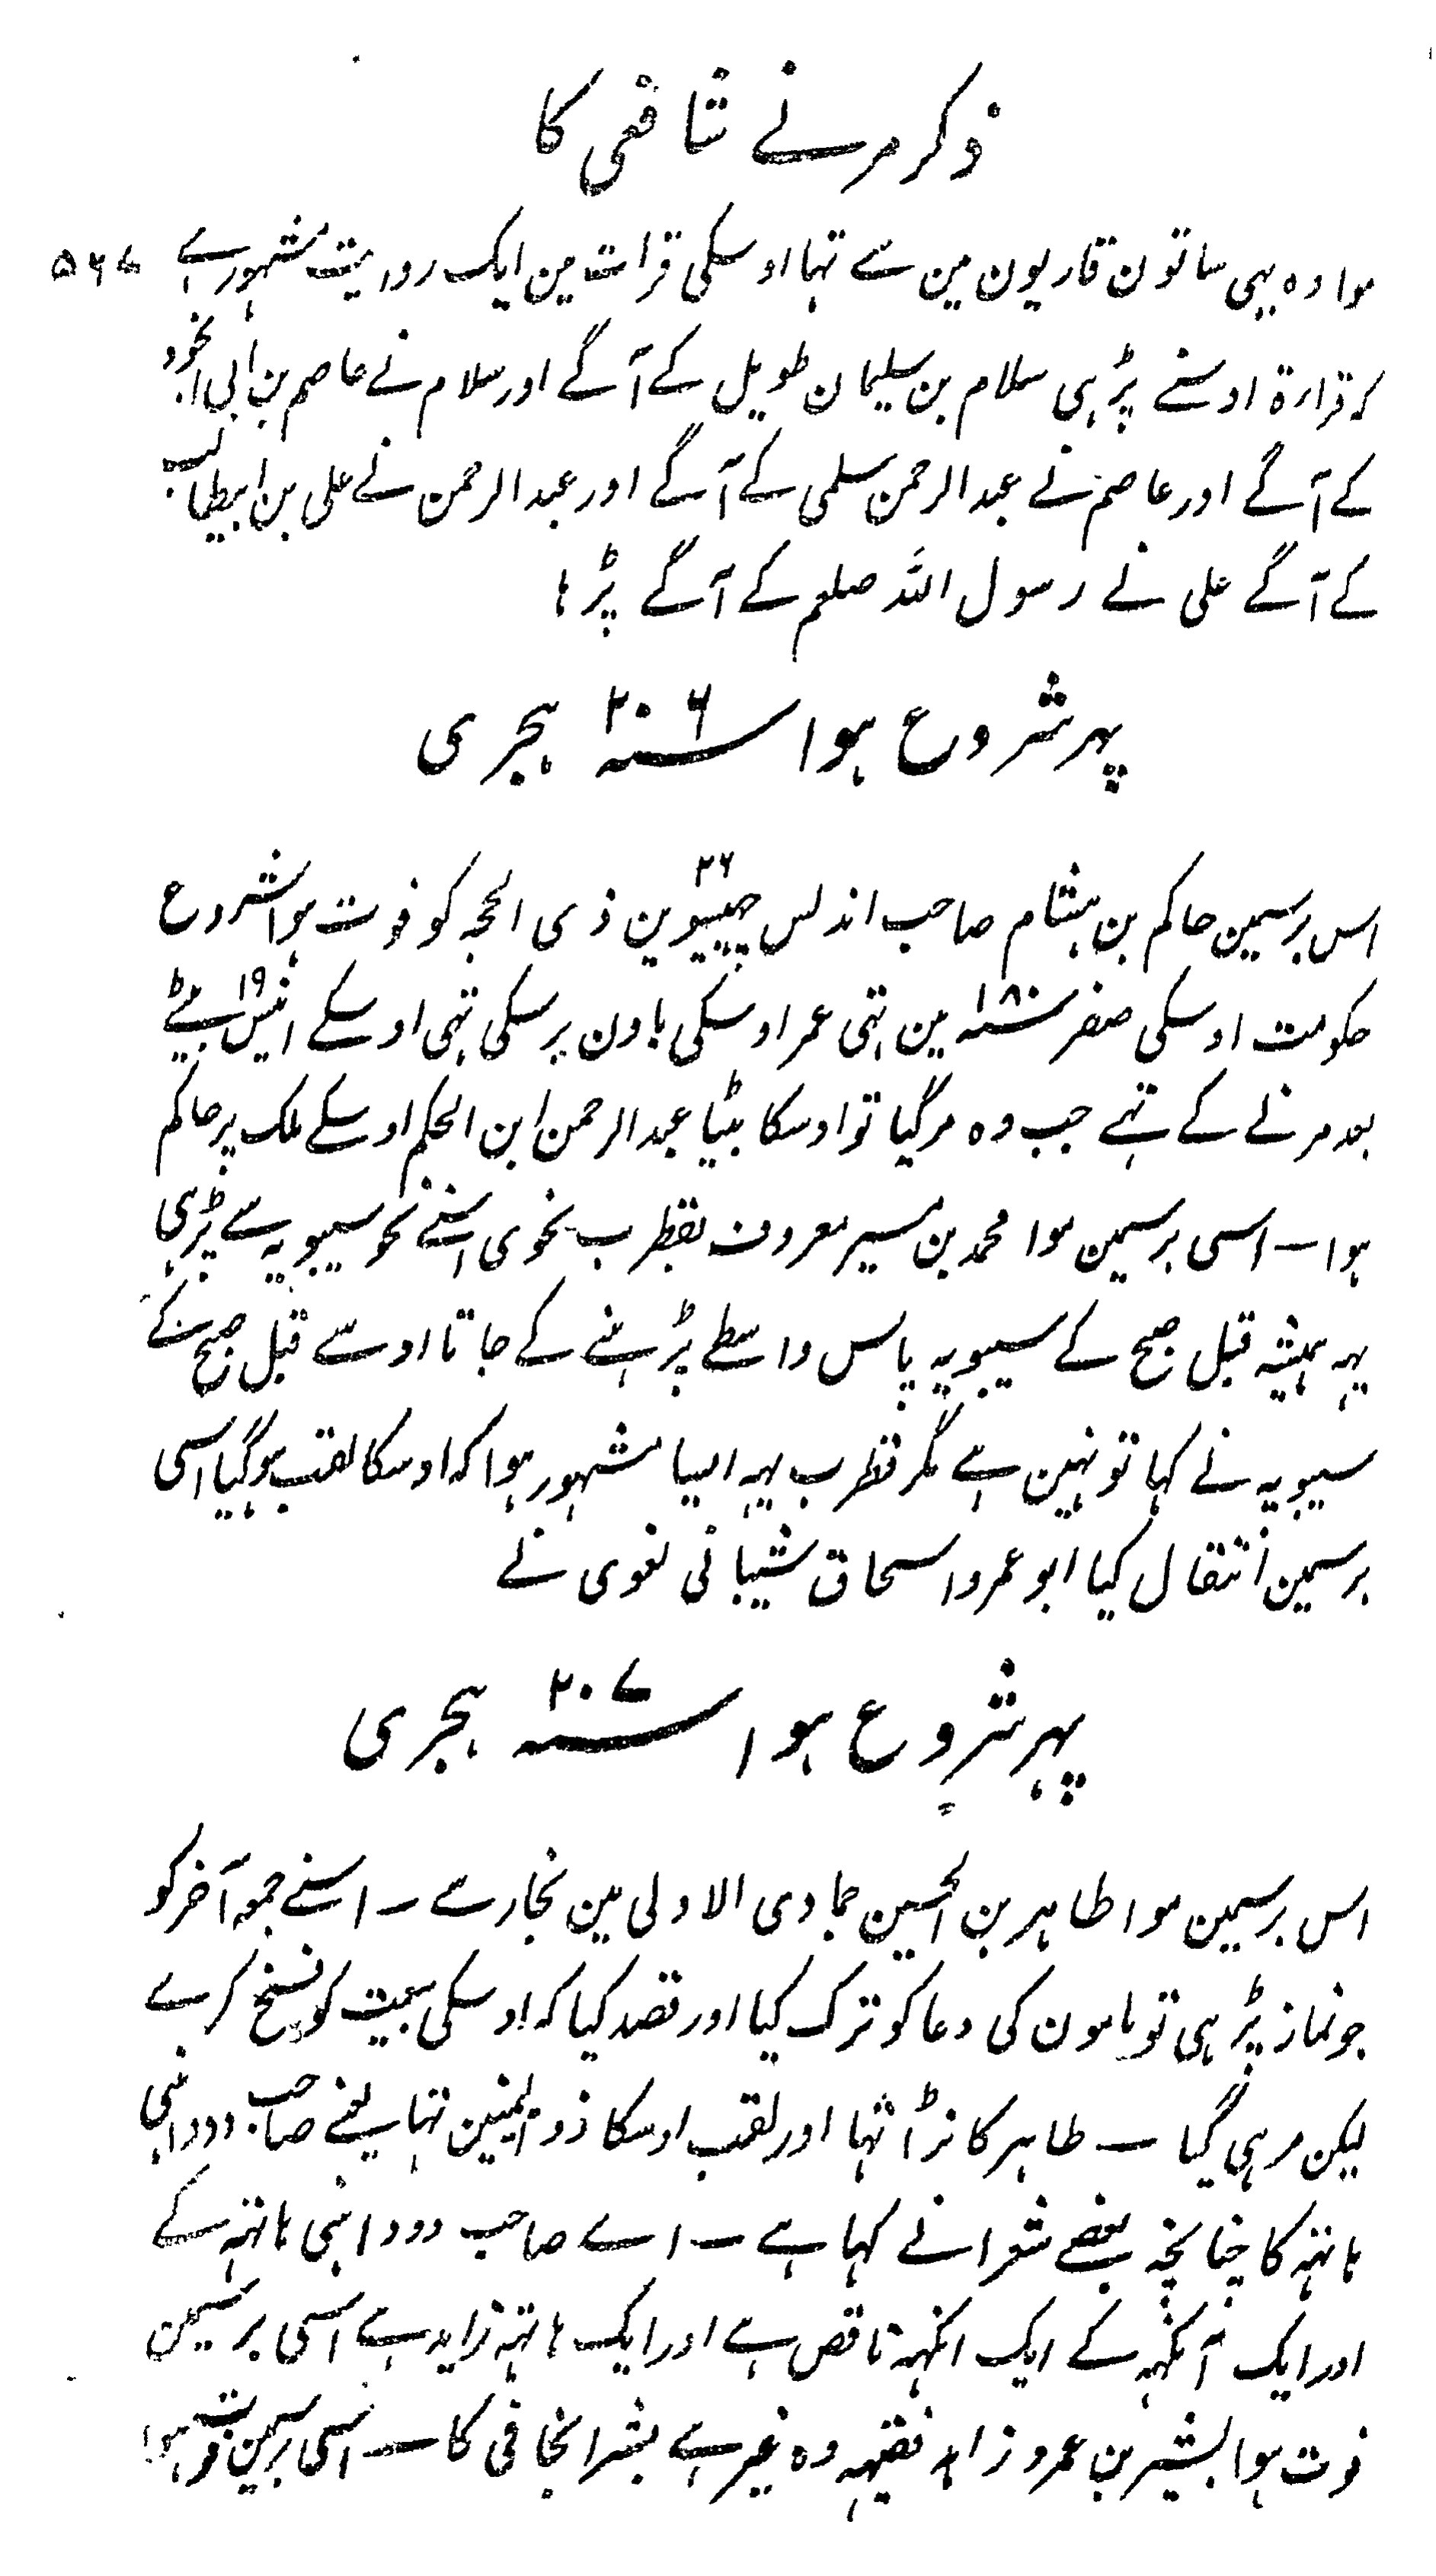 ذکر مرنے شافعی کا
موا وہ بہی ساتون قاریون مین سے تہا اوسکی قرات مین ایک روایت مشہور ہے ۵۶۷
کہ قراءۃ اوسنے پڑہی سلام بن سلیمان طویل کے آگے اور سلام نے عاصم بن ابی النجود
کے آگے اور عاصم نے عبد الرحمن سلمی کے آگے اور عبد الرحمن نے علی بن ابیطالب
کے آگے علی نے رسول اللہ صلعم کے آگے پڑہا
پہر شروع ہوا سنہ ۲۰۶ ہجری
اس برسمین حاکم بن ہشام صاحب اندلس چہبیسوین ۲۶ ذی الحجہ کو فوت ہوا شروع
حکومت اوسکی صفر سنہ ۱۸۰ مین تہی عمر اوسکی باون برسکی تہی اوسکے انیس ۱۹ بیٹے
بعد مرنے کے تہے جب وہ مرگیا تو اوسکا بیٹا عبد الرحمن ابن الحکم اوسکے ملک پر حاکم
ہوا ــ اسی برسمین موا محمد بن مسیر معروف بقطرب نحوی اسنے نحو سیبویہ سے پڑہی
یہہ ہمیشہ قبل صبح کے سیبویہ پاس واسطے پڑہنے کے جاتا اوسے قبل صبح کے
سیبویہ نے کہا تو نہین ہے مگر قطرب یہہ ایسا مشہور ہوا کہ اوسکا لقب ہوگیا اسی
برسمین انتقال کیا ابو عمرو اسحاق شیبانی لغوی نے
پہر شروع ہوا سنہ ۲۰۷ ہجری
اس برسمین موا طاہر بن الحسین جمادی الاولی مین بخار سے ــ اسنے جمعہ آخر کو
جو نماز پڑہی تو مامون کی دعا کو ترک کیا اور قصد کیا کہ اوسکی بیعت کو فسخ کرے
لیکن مرہی گیا ــ طاہر کانڑا تہا اور لقب اوسکا ذو الیمنین تہا یعنے صاحب دو داہنی
ہاتہہ کا چنانچہ بعضے شعرا نے کہا ہے ــ اے صاحب دو داہنی ہاتہہ کے
اور ایک آنکہہ کے ایک انکہہ ناقص ہے اور ایک ہاتہہ زاید ہے اسی برسمین
فوت ہوا بشیر بن عمرو زاہد فقیہہ وہ غیر ہے بشر الحافی کا ــ اسی برسمین فوت ہوا